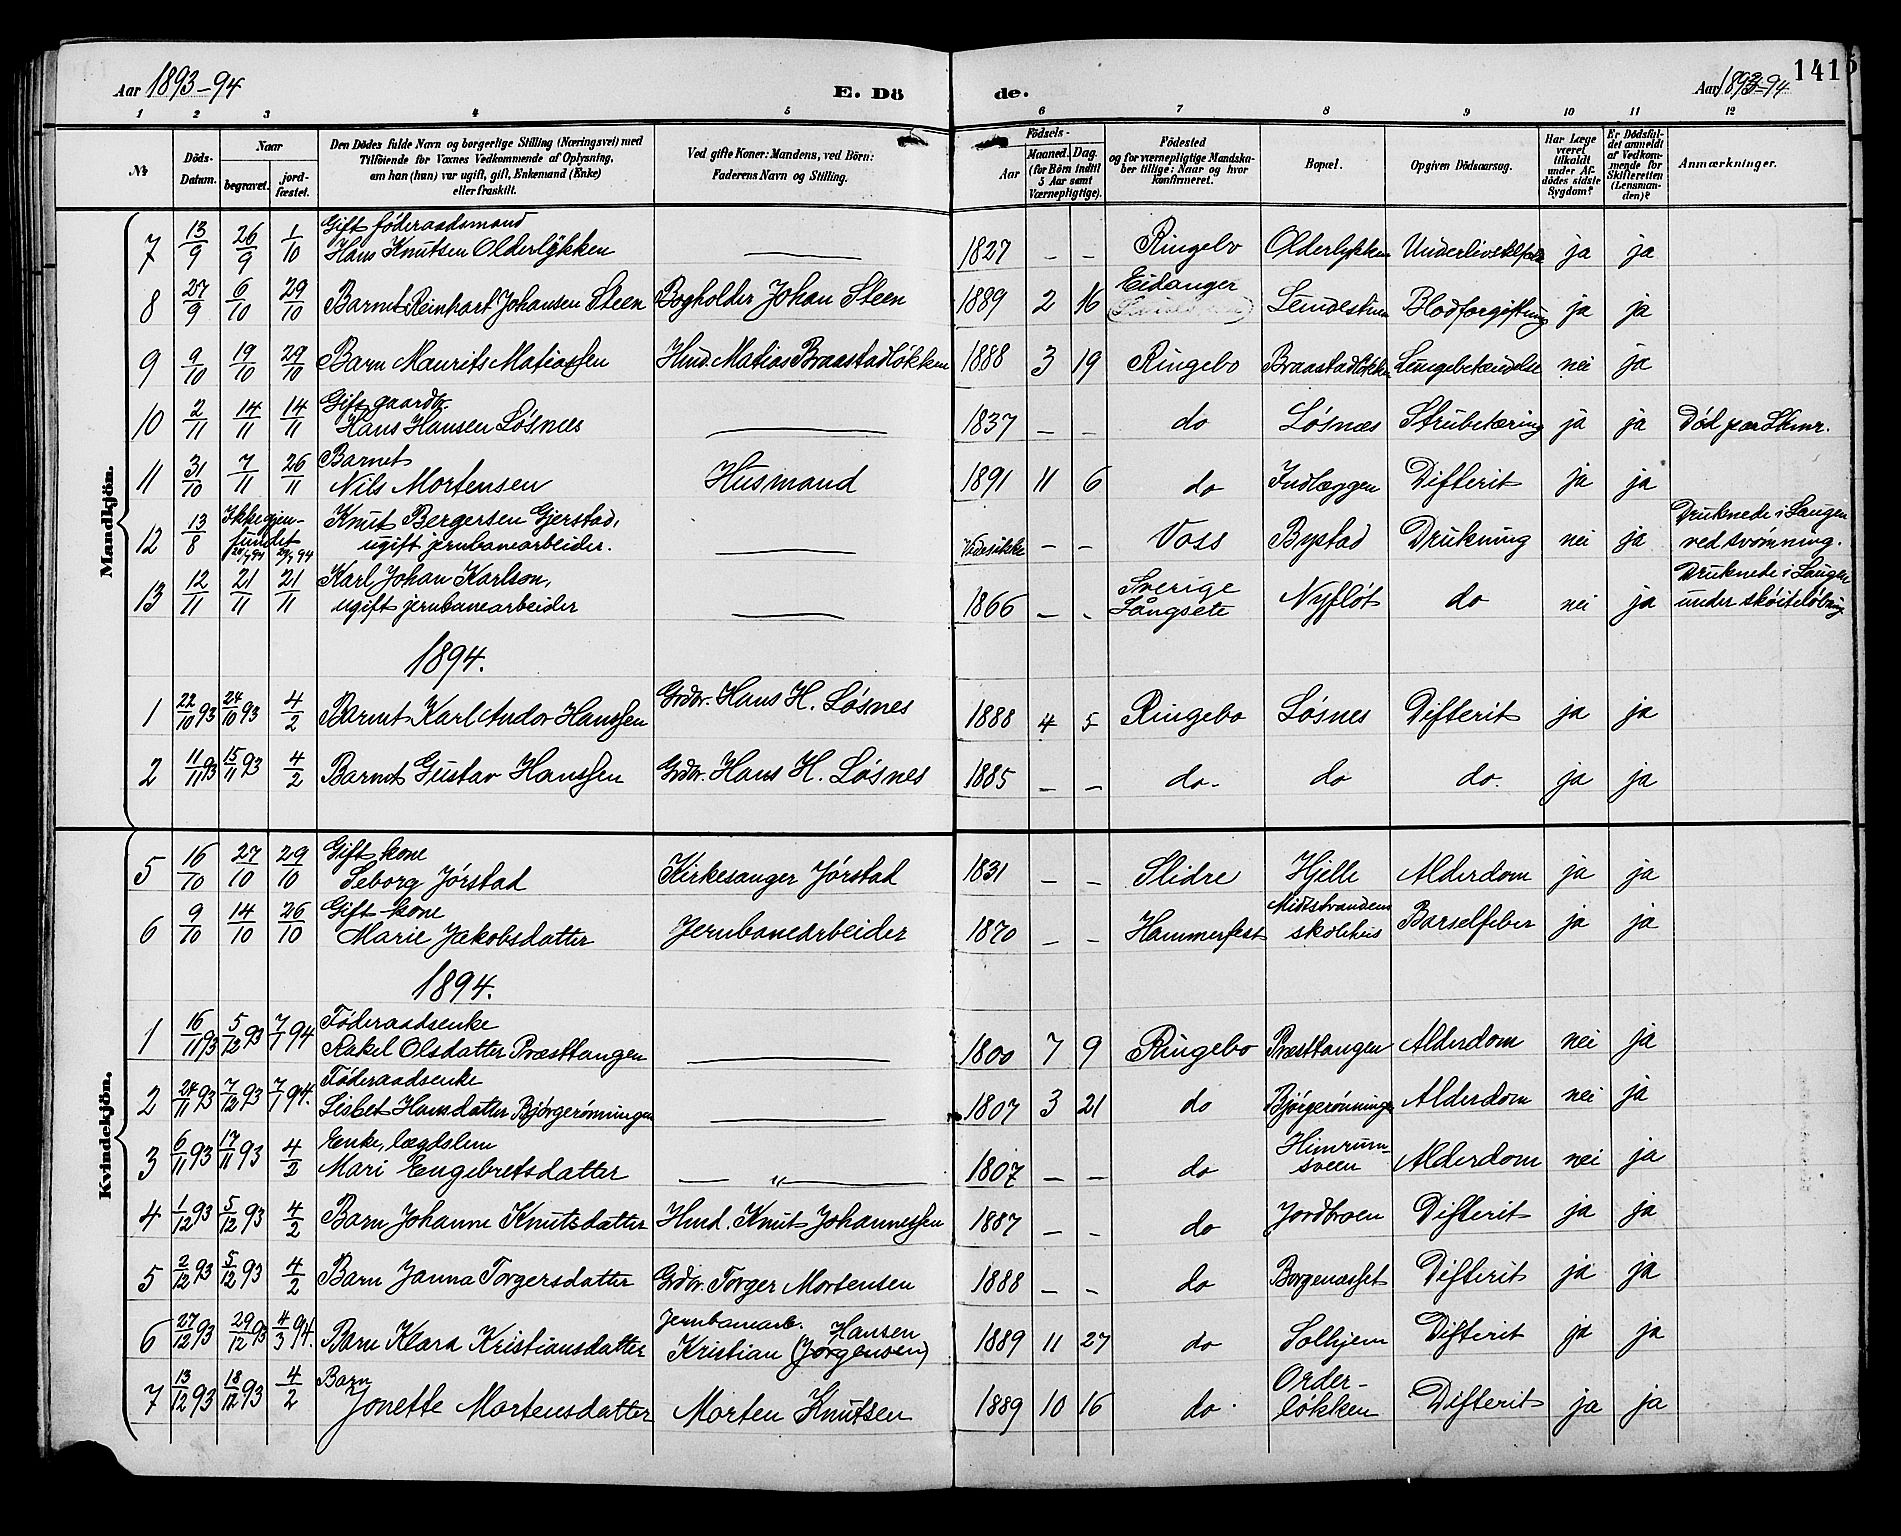 Aar 1893-94 E. Dö de. Aar 1893-94 141
1 2 3 4 5 6 7 8 9 10 11 12
№ Döds-Datum. Naar begravet. jordfæstet. Den Dödes fulde Navn og borgerlige Stilling (Næringsvei) med Tilföiende for Voxnes Vedkommende af Oplysning, om han (hun) var ugift, gift, Enkemand (Enke) eller fraskilt. Ved gifte Koner: Mandens, ved Börn: Faderens Navn og Stilling. Födsels- Aar Maaned. Dag. (for Börn indtil 5 Aar samt Værnepligtige). Födested og for værnepligtige Mandskaber tillige: Naar og hvor konfirmeret. Bopæl. Opgiven Dödsaarsag. Har Læge været tilkaldt under Afdödes sidste Sygdom? Er Dödsfuldet anmeldt af Vedkommende for Skifteretten (Lensmanden)? Anmærkninger.
Mandkjön.
7 13/9 26/9 1/10 Gift føderaadsmand Hans Knutsen Olderlykken — 1827 — — Ringebo Olderlykken ja ja
8 27/9 6/10 29/10 Barnet Reinhart Johansen Steen Bogholder Johan Steen 1889 2 16 Eidanger Blodforgiftning ja ja
9 9/10 19/10 29/10 Barn Maurits Matiassen Husd. Matias Braastadløkken 1888 3 19 Ringebo Braastadløkken Lungebetændelse nei ja
10 2/11 14/11 14/11 Gift gaardbr. Hans Hansen Løsnes — 1837 — — do Løsnæs Strubetæring ja ja Død paa
11 31/10 7/11 26/11 Barnet Nils Mortensen Husmand 1891 11 6 do Indlæggen Difterit ja ja
12 13/8 Ikke gjenfundet Knut Bergersen Gjerstad, ugift jernbanearbeider. — Vides ikke — — Voss Bystad Drukning nei ja Druknede i Laugen ved svømning.
13 12/11 21/11 21/11 Karl Johan Karlson, ugift jernbanearbeider — 1866 — - Sverige Långsete Nyfløt do nei ja Druknede i Laugen under skøiteløbning
1894.
1 22/10 93 24/10 93 4/2 Barnet Karl Andor Hanssen Grdbr. Hans H. Løsnes 1888 4 5 Ringebo Løsnes Difterit ja ja
2 11/11 93 15/11 93 4/2 Barnet Gustav Hanssen Grdbr. Hans H. Løsnes 1885 — — do- do do. ja ja
Kvindekjön.
5 16/10 27/10 29/10 Gift kone Seborg Jørstad Kirkesanger Jørstad 1831 — — Slidre Hjelle Alderdom ja ja
6 9/10 14/10 26/10 Gift kone Marie Jakobsdatter Jernbanearbeider 1870 — — Hammerfest Midtstrandens skolehus Barselfeber ja ja
1894.
1 16/11 93 5/12 93 7/1 94 Føderaadsenke Rakel Olsdatter Præsttangen — 1800 7 9 Ringebo Præsttangen Alderdom nei ja
2 24/11 93 7/12 93 7/1 94. Føderaadsenke Lisbet Hansdatter Bjørgerønningen — 1807 3 21 do Bjørgerønningen Alderdom nei ja
3 6/11 93 17/11 93 4/2 Enke, lægdslem Mari Engebretsdatter — " — 1807 — — do Himrumsveen Alderdom nei ja
4 1/12 93 5/12 93 4/2 Barn Johanne Knutsdatter Husd. Knut Johannessen 1887 — — do Jordbroen Difterit ja ja
5 2/12 93 5/12 93 4/2 Barn Janna Torgersdatter Grdbr. Torger Mortensen 1888 — — do Borgenæsset Difterit ja ja
6 27/12 93 29/12 93 4/3 94. Barn Klara Kristiansdatter Jernbanearb. Kristian Hansen (Jørgensen) 1889 11 27 do Solhjem Difterit ja ja
7 13/12 93 18/12 93 4/2 Barn Jonette Mortensdatter Morten Knutsen 1889 10 16 do. Orderløkken Difterit ja ja